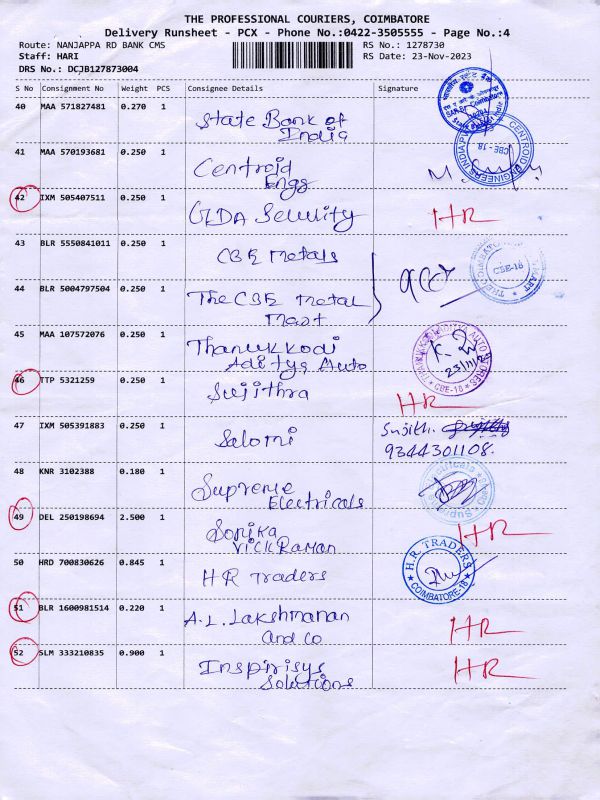 THE PROFESSIONAL COURIERS, COIMBATORE
Delivery Runsheet - PCX - Phone No.:0422-3505555 - Page No.:4
Route: NANJAPPA RD BANK CMS RS No.: 1278730
Staff: HARI RS Date: 23-Nov-2023
DRS No.: DCJB127873004
S No Consignment No Weight PCS Consignee Details Signature
40 MAA 571827481 0.270 1 State Bank of
India
41 MAA 570193681 0.250 1 Centroid
Engs
CENTROID ENGINEERS INDIA
CBE - 18
42 IXM 505407511 0.250 1 GLDA Security HR
43 BLR 5550841011 0.250 1 CBE Metals
CBE-18
44 BLR 5004797504 0.250 1 The CBE Metal
Mart
45 MAA 107572076 0.250 1 Thanukkodi
Aditys Auto
23/11/
* CBE-18 *
46 TTP 5321259 0.250 1 Sujithra HR
47 IXM 505391883 0.250 1 Salomi Sujith.
9344301108.
48 KNR 3102388 0.180 1 Supreme
Electricals
49 DEL 250198694 2.500 1 Sonika
Vickraman HR
50 HRD 700830626 0.845 1 HR Traders
H.R. TRADERS
* COIMBATORE-18 *
51 BLR 1600981514 0.220 1 A.L. Lakshmanan
and co HR
52 SLM 333210835 0.900 1 Inspirisys
Solutions HR